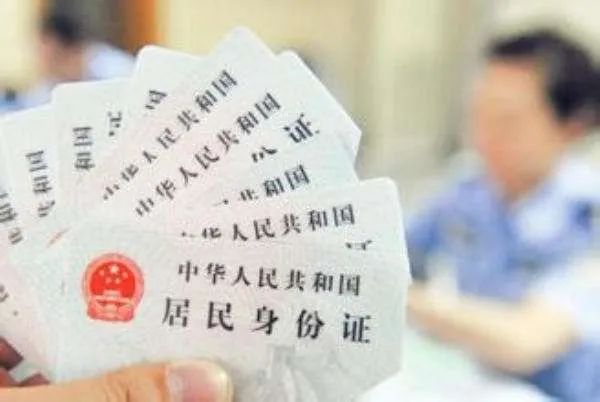 和国
国
中华人民共和国
中华人民共和国
份证
共和国
华人民共和国
中华人民共和国
居民身份证